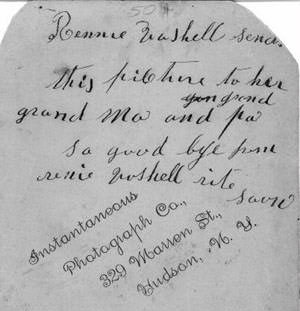 50
Rennie Voshell send
this picbture to her
grand
grand Ma and pa
so good bye from
renie Voshell rite
soon
Instantaneous
Photograph Co.,
329 Warren St.,
Hudson, N. Y.